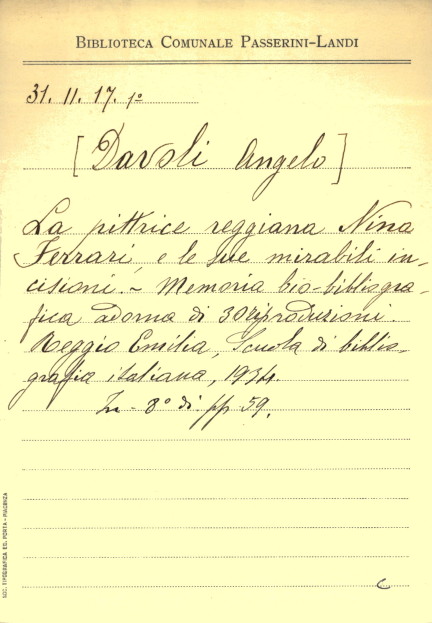 BIBLIOTECA COMUNALE PASSERINI-LANDI
31. II. 17. 1º
[Davoli Angelo]
La pittrice reggiana Nina
Ferrari, e le sue mirabili in-
cisioni. - Memoria bio-bibliogra-
fica adorna di 30 riproduzioni.
Reggio Emilia, Scuola di biblio-
grafia italiana, 1934.
In-8º di pp. 59.
SOC. TIPOGRAFICA ED. PORTA - PIACENZA
c